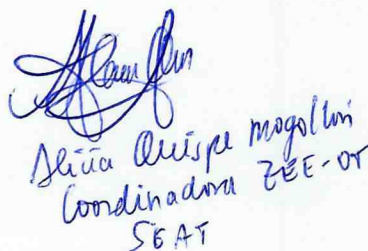 Alicia Quispe Mogollón
Coordinadora ZEE-OT
SEAT